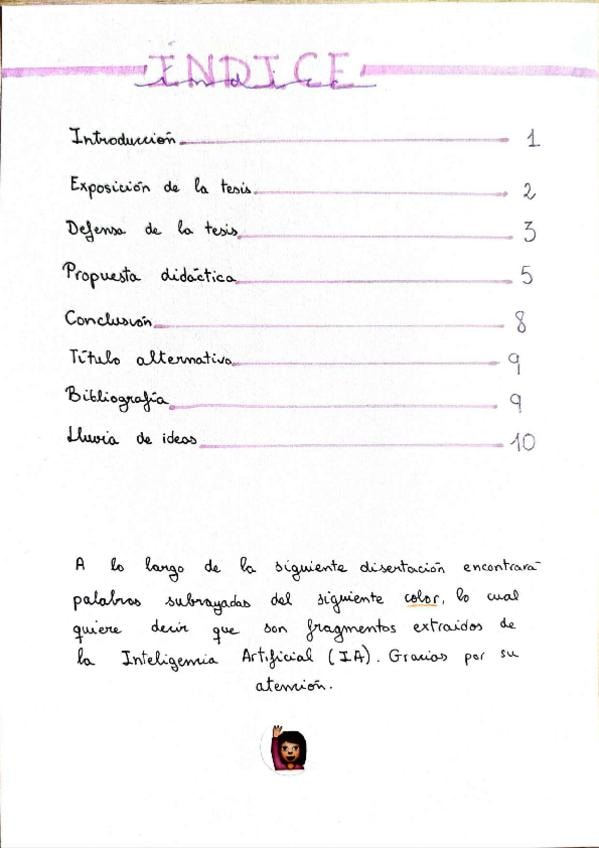 ÍNDICE
índice
Introducción 1
Exposición de la tesis 2
Defensa de la tesis 3
Propuesta didáctica 5
Conclusión 8
Título alternativo 9
Bibliografía 9
Lluvia de ideas 10
A lo largo de la siguiente disertación encontrará
palabras subrayadas del siguiente color, lo cual
quiere decir que son fragmentos extraídos de
la Inteligencia Artificial (IA). Gracias por su
atención.